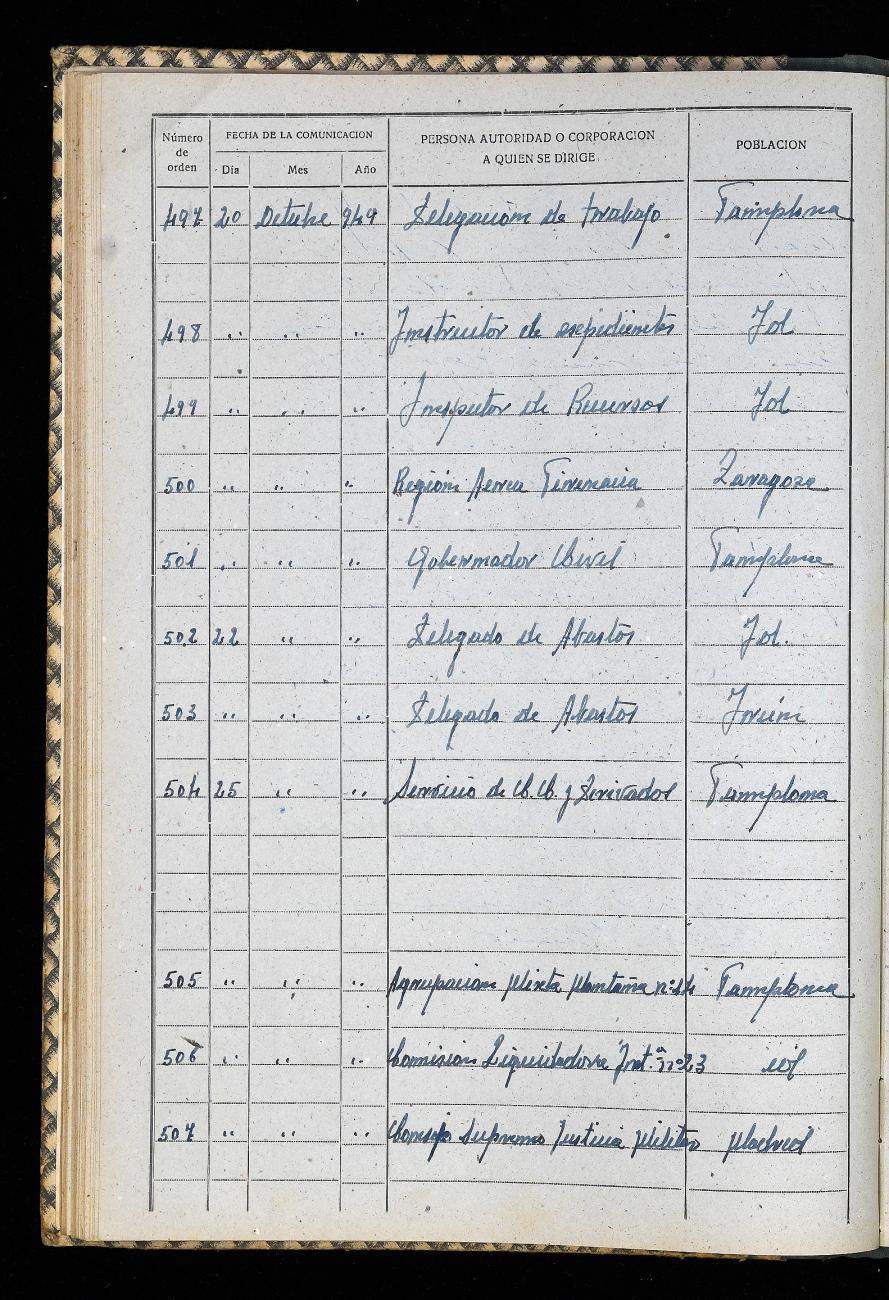 Número de orden FECHA DE LA COMUNICACION PERSONA AUTORIDAD O CORPORACION A QUIEN SE DIRIGE POBLACION
Día Mes Año
497 20 Octubre 949 Delegación de trabajo Pamplona
498 " " " Instructor de expedientes Id
499 " " " Inspector de Recursos Id
500 " " " Región Aerea Pirenaica Zaragoza
501 " " " Gobernador Civil Pamplona
502 22 " " Delegado de Abastos Id.
503 " " " Delegado de Abastos Irún
504 25 " " Servicio de C.C. y Derivados Pamplona
505 " " " Agrupacion Mixta Montaña nº 14 Pamplona
506 " " " Comision Liquidadora Inf.ª nº 23 id
507 " " " Consejo Supremo Justicia Militar Madrid